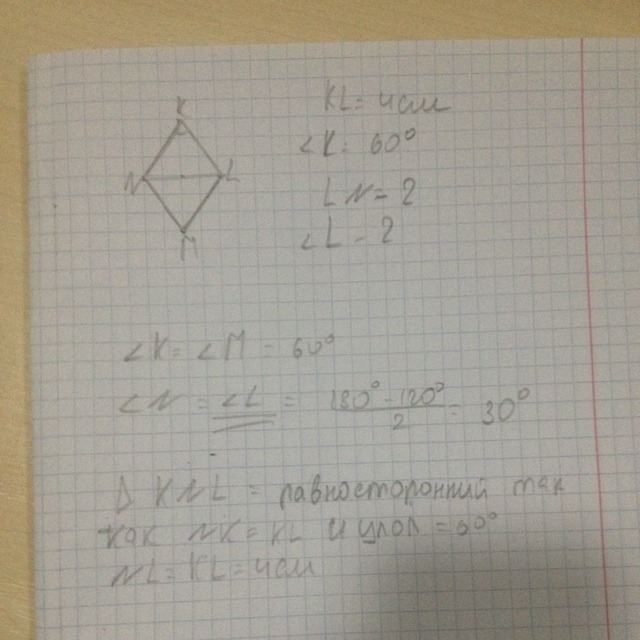 K
N L
M
KL = 4см
∠K = 60°
LN = ?
∠L - ?
∠K = ∠M = 60°
∠N = ∠L = (180° - 120°)/2 = 30°
Δ KNL = равносторонний так
как NK = KL и угол = 60°
NL = KL = 4см